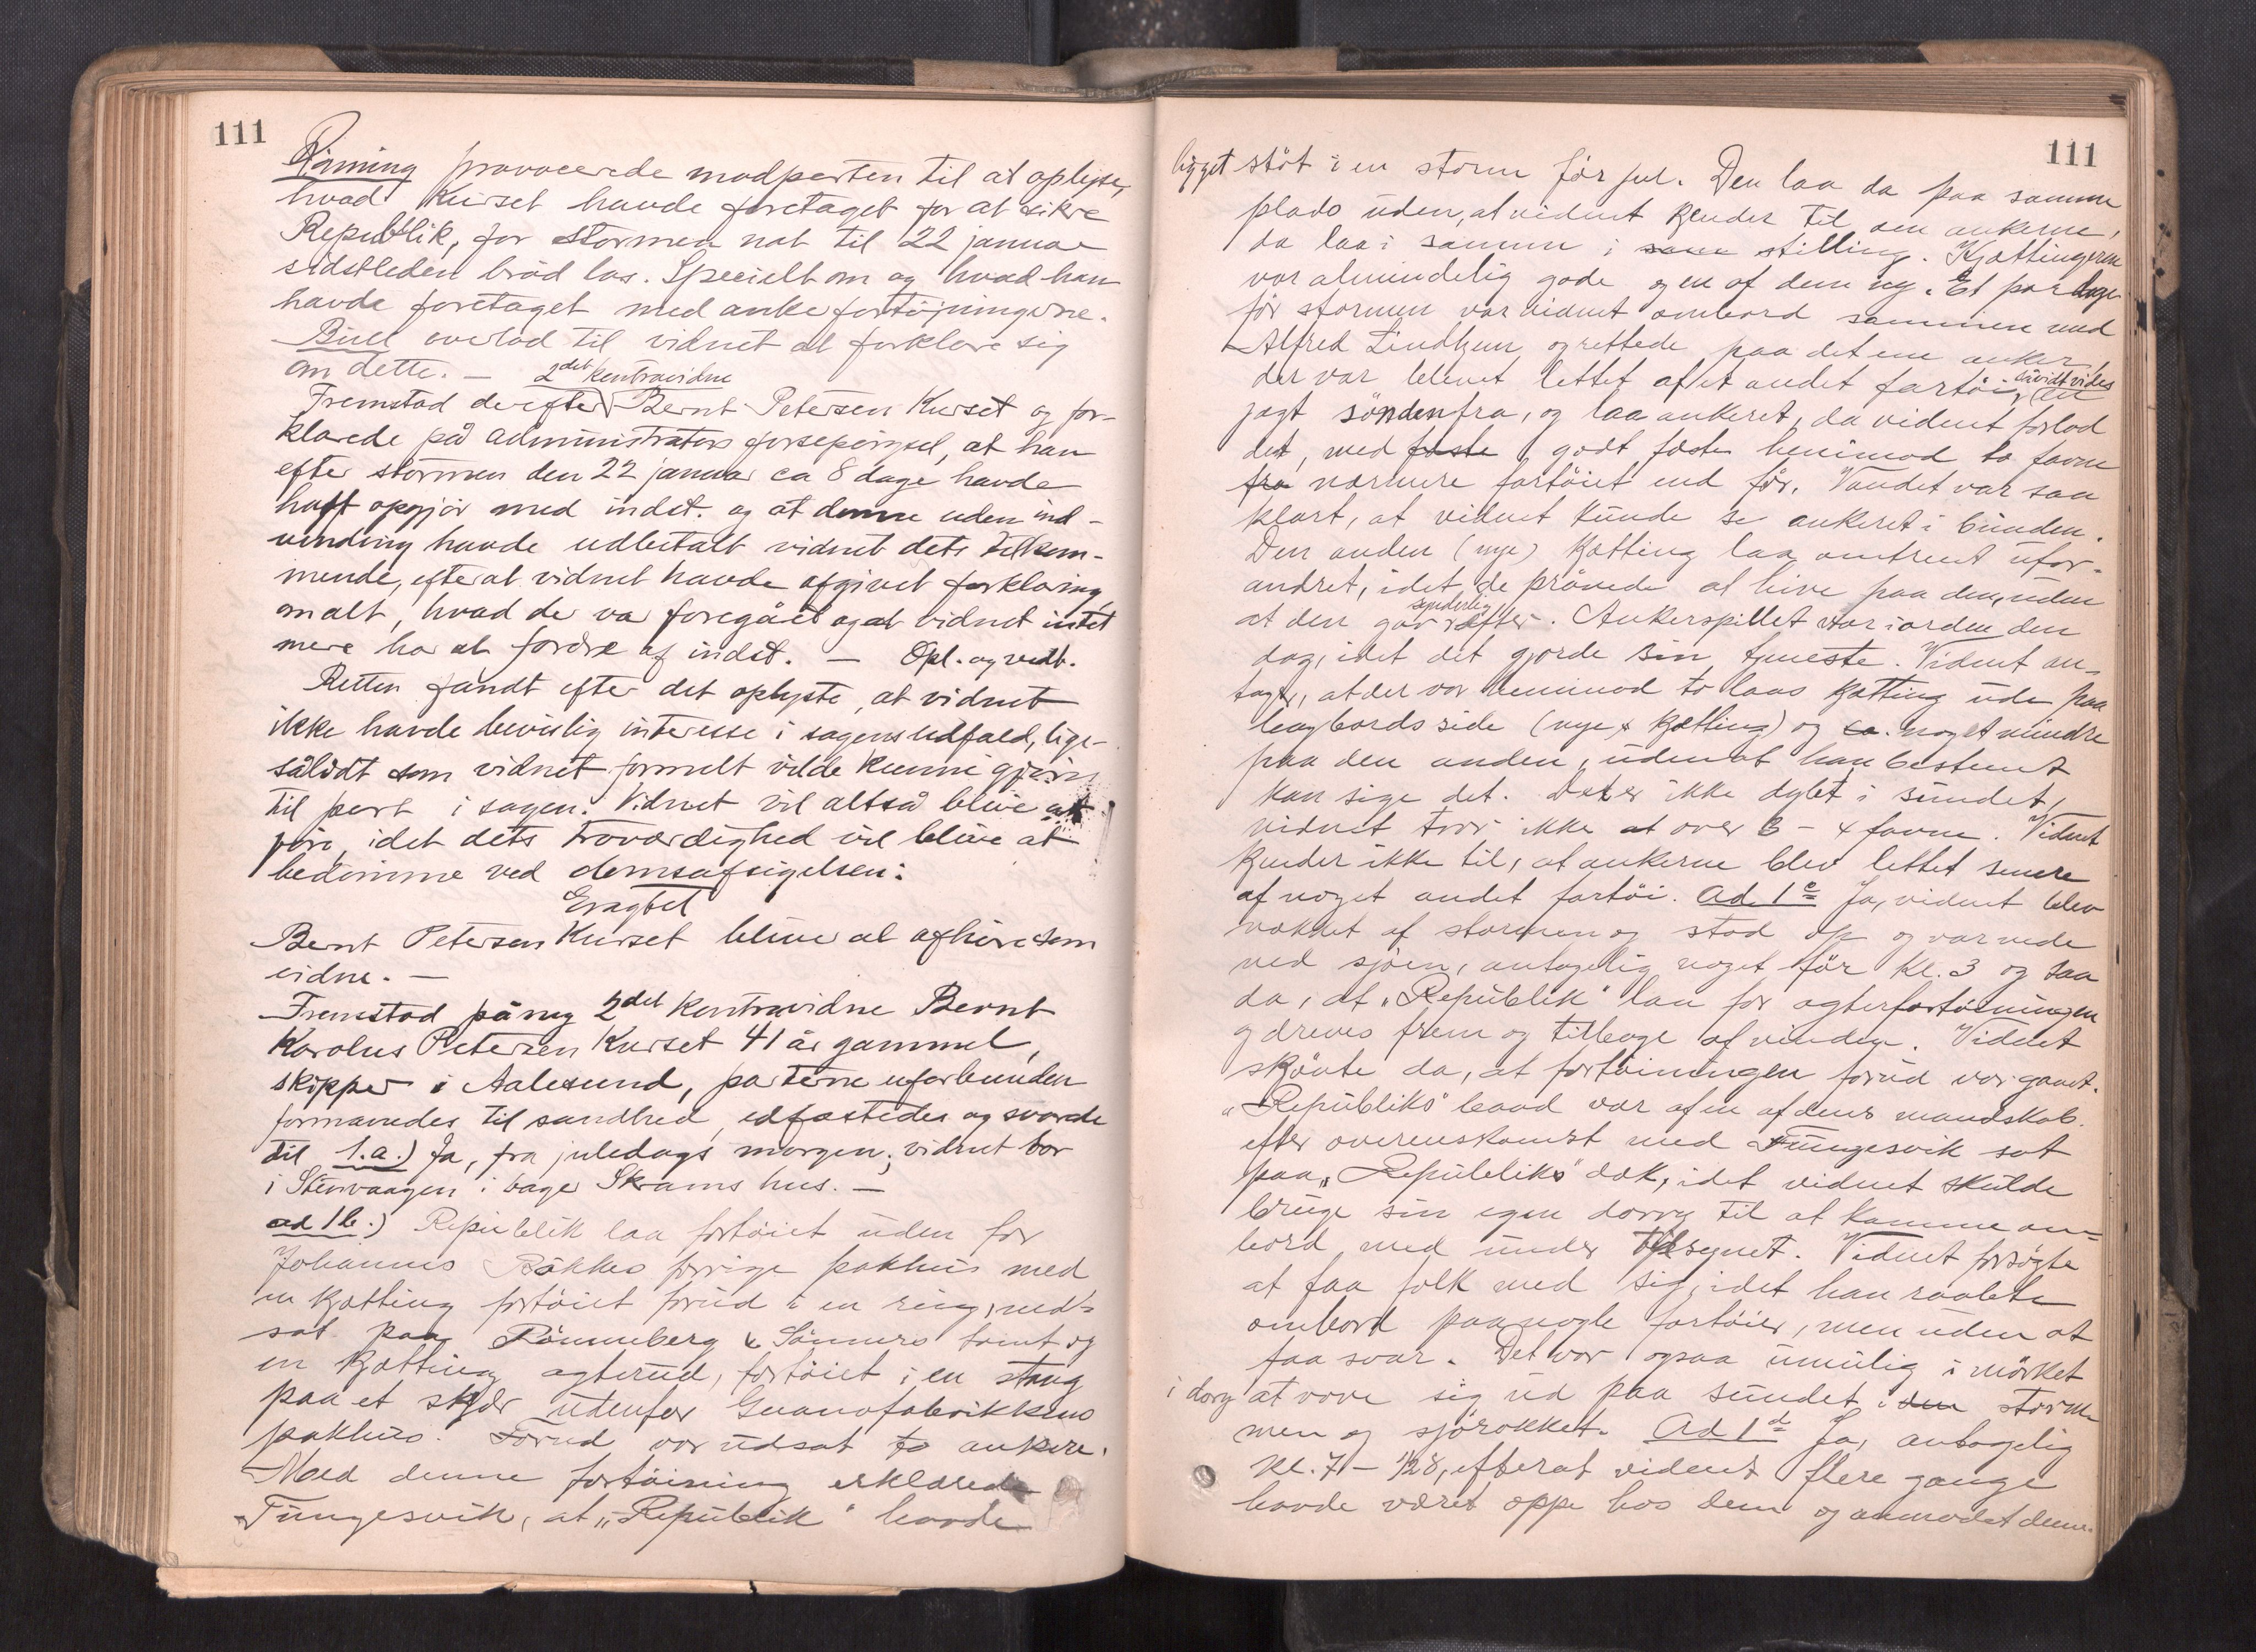 111
Röming provocerede modparten til at oplyse,
hvad Kurset havde foretaget for at sikre
Republik, før stormen nat til 22 januar
sidstleden bröd løs. Specielt om og hvad han
havde foretaget med ankerfortøjningerne.
Bull overlod til vidnet at forklare sig
om dette. — 2det kontravidne
Fremstod derefter Bernt Petersen Kurset og for-
klarede på administrators forespørgsel, at han
efter stormen den 22 januar ca 8 dage havde
haft opgjør med indst. og at denne uden ind-
vending havde udbetalt vidnet dets tilkom-
mende, efterat vidnet havde afgivet forklaring
om alt, hvad der var foregået og at vidnet intet
mere har at fordre af indst. — Opl. og vedt.
Retten fandt efter det oplyste, at vidnet
ikke havde bevislig interesse i sagens udfald, lige-
sålidt som vidnet formelt vilde kunne gjøres
til part i sagen. Vidnet vil altså blive at
føre, idet dets troværdighed vil blive at
bedømme ved domsafsigelsen:
Eragtet
Bernt Petersen Kurset bliver at afhøre som
vidne. —
Fremstod påny 2det kontravidne Bernt
Karolus Petersen Kurset 41 år gammel,
skipper i Aalesund, parterne uforbunden
formanedes til sandhed, edfæstedes og svarede
til 1.a.) Ja, fra juledags morgen; vidnet bor
i Stenvaagen i bager Skrams hus. —
ad 1b.) Republik laa fortöiet uden for
Johannes Bakkes forrige pakhus med
en kjætting fortöiet forud i en ring, ned-
sat paa Rönneberg & Sönners tomt og
en kjætting agterud, fortöiet i en stang
paa et skjær udenfor Guanofabrikkens
pakhus. Forud var udsat to ankere.
Med denne fortöining erklærede
Tungesvik, at "Republik" havde
111
ligget stöt i en storm för jul. Den laa da paa samme
plads uden, at vidnet kjender til om ankerne,
da laa i samme i stilling. Kjættingerne
var almindelig gode og en af dem ny. Et par dage
för stormen var vidnet ombord sammen med
Alfred Lindhjem og rettede paa det ene anker,
der var blevet lettet af et andet fartöi, såvidt vides en
jagt söndenfra, og laa ankeret, da vidnet forlod
det, med faste godt fæste henimod to favne
fra nærmere fartöiet end för. Vandet var saa
klart, at vidnet kunde se ankeret i bunden.
Den anden (nye) kjætting laa omtrent ufor-
andret, idet de prövede at hive paa den, uden
at den gav synderlig efter. Ankerspillet var i orden den
dag, idet det gjorde sin tjeneste. Vidnet an-
tager, at der var henimod to laas kjætting ude paa
bagbords side (nye kjætting) og ca. noget mindre
paa den anden, uden at han bestemt
kan sige det. Det er ikke dybt i sundet,
vidnet tror ikke at over 3 - 4 favne. Vidnet
kjender ikke til, at ankerne blev lettet senere
af noget andet fartöi. Ad 1c Ja, vidnet blev
vækket af stormen og stod op og var nede
ved sjöen, antagelig noget för kl. 3 og saa
da, at "Republik" laa for agterfortöiningen
og dreves frem og tilbage af vinden. Vidnet
skjönte da, at fortöiningen forud var gaaet.
"Republiks" baad var af en af dens mandskab
efter overenskomst med Tungesvik sat
paa "Republiks" dæk, idet vidnet skulde
bruge sin egen dorry til at komme om-
bord med under tilsynet. Vidnet forsögte
at faa folk med sig, idet han raabte
ombord paa nogle fartöier, men uden at
faa svar. Det var ogsaa umulig i mörket
i dory at vove sig ud paa sundet i den storm
men og sjörokket. Ad 1d Ja, antagelig
kl. 7 - ½8, efterat vidnet flere gange
havde været oppe hos dem og anmodet denne